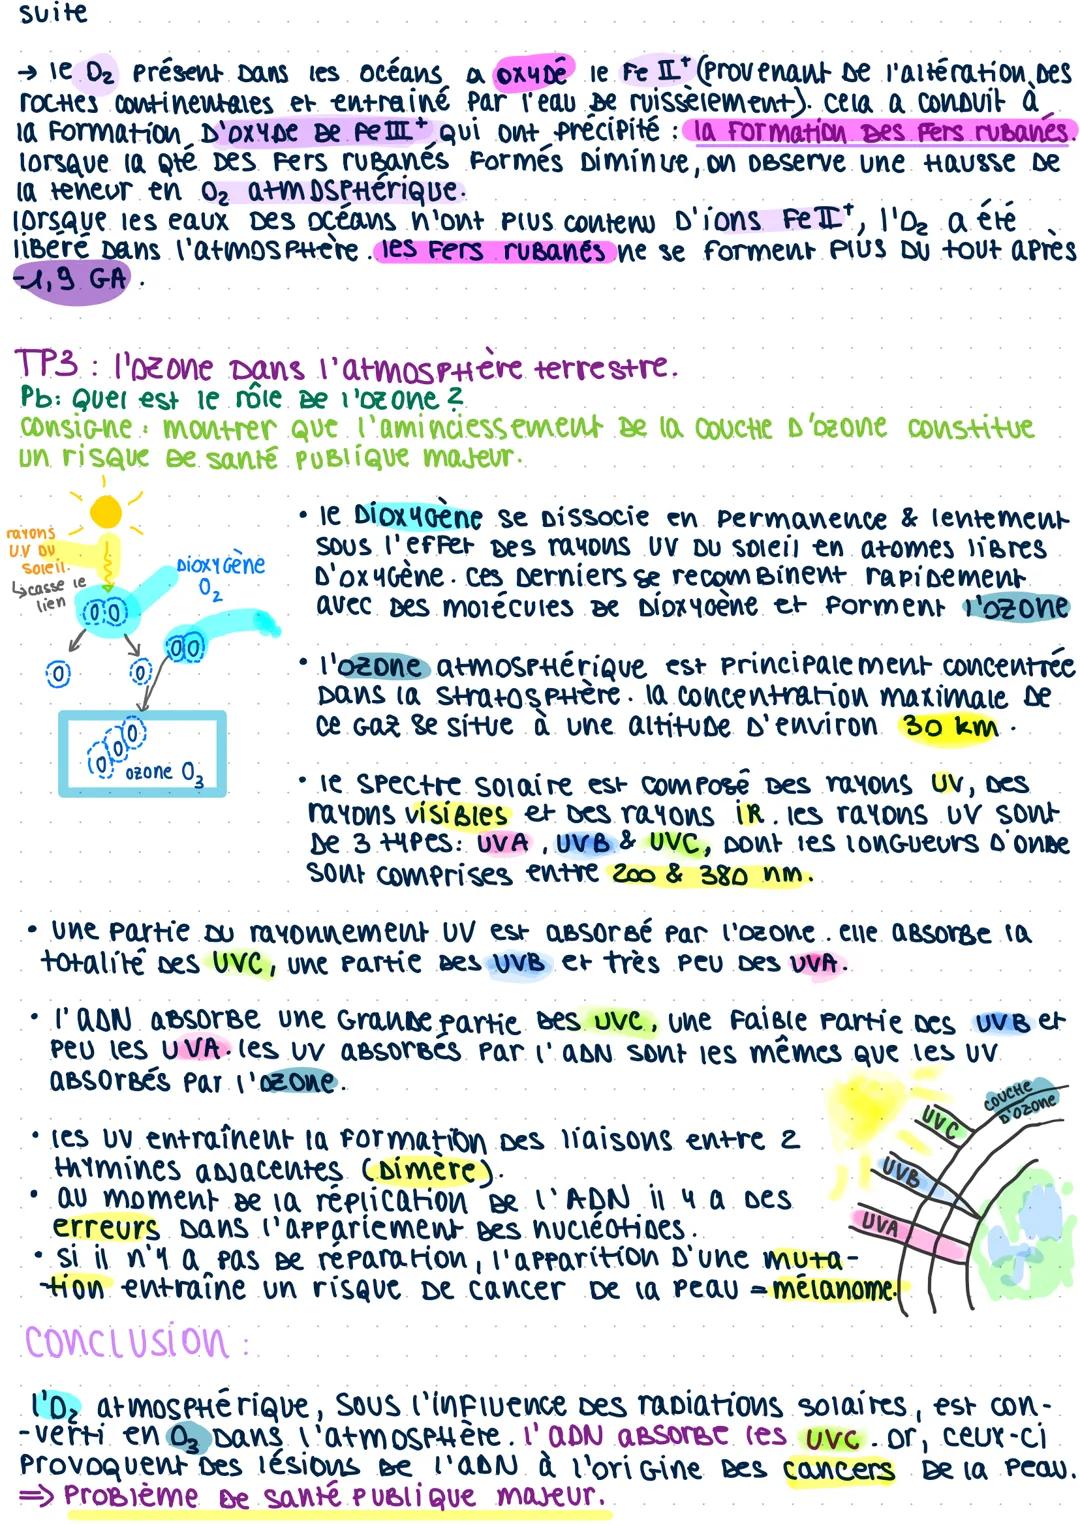 suite
→ le O₂ présent dans les océans a oxydé le Fe II⁺ (provenant de l'altération des
roches continentales et entrainé par l'eau de ruissèlement). cela a conduit à
la formation d'oxyde de Fe III⁺ qui ont précipité : la formation des fers rubanés.
lorsque la qté des fers rubanés formés diminue, on observe une hausse de
la teneur en O₂ atmosphérique.
lorsque les eaux des océans n'ont plus contenu d'ions Fe II⁺, l'O₂ a été
libéré dans l'atmosphère. les fers rubanés ne se forment plus du tout après
-1,9 GA.
TP3 : l'ozone dans l'atmosphère terrestre.
Pb: Quel est le rôle de l'ozone ?
consigne : montrer que l'aminciessement de la couche d'ozone constitue
un risque de santé publique majeur.
rayons
U.V du
soleil.
↳casse le
lien
Dioxygène
O₂
ozone O₃
• le Dioxygène se dissocie en permanence & lentement
sous l'effet des rayons UV du soleil en atomes libres
d'oxygène. ces derniers se recombinent rapidement
avec des molécules de dioxygène et forment l'ozone
• l'ozone atmosphérique est principalement concentrée
dans la stratosphère. la concentration maximale de
ce gaz se situe à une altitude d'environ 30 km.
• le spectre solaire est composé des rayons UV, des
rayons visibles et des rayons IR. les rayons UV sont
de 3 types: UVA, UVB & UVC, dont les longueurs d'onde
sont comprises entre 200 & 380 nm.
• une partie du rayonnement UV est absorbé par l'ozone. elle absorbe la
totalité des UVC, une partie des UVB et très peu des UVA.
• l'ADN absorbe une grande partie des UVC, une faible partie des UVB et
peu les UVA. les UV absorbés par l'ADN sont les mêmes que les UV
absorbés par l'ozone.
• les UV entraînent la formation des liaisons entre 2
thymines adjacentes (dimère).
• au moment de la réplication de l'ADN il y a des
erreurs dans l'appariement des nucléotides.
• si il n'y a pas de réparation, l'apparition d'une muta-
-tion entraîne un risque de cancer de la peau = mélanome.
UVC
UVB
UVA
couche
d'ozone
conclusion :
l'O₂ atmosphérique, sous l'influence des radiations solaires, est con-
-verti en O₃ dans l'atmosphère. l'ADN absorbe les UVC. or, ceux-ci
provoquent des lésions de l'ADN à l'origine des cancers de la peau.
⇒ Problème de santé publique majeur.